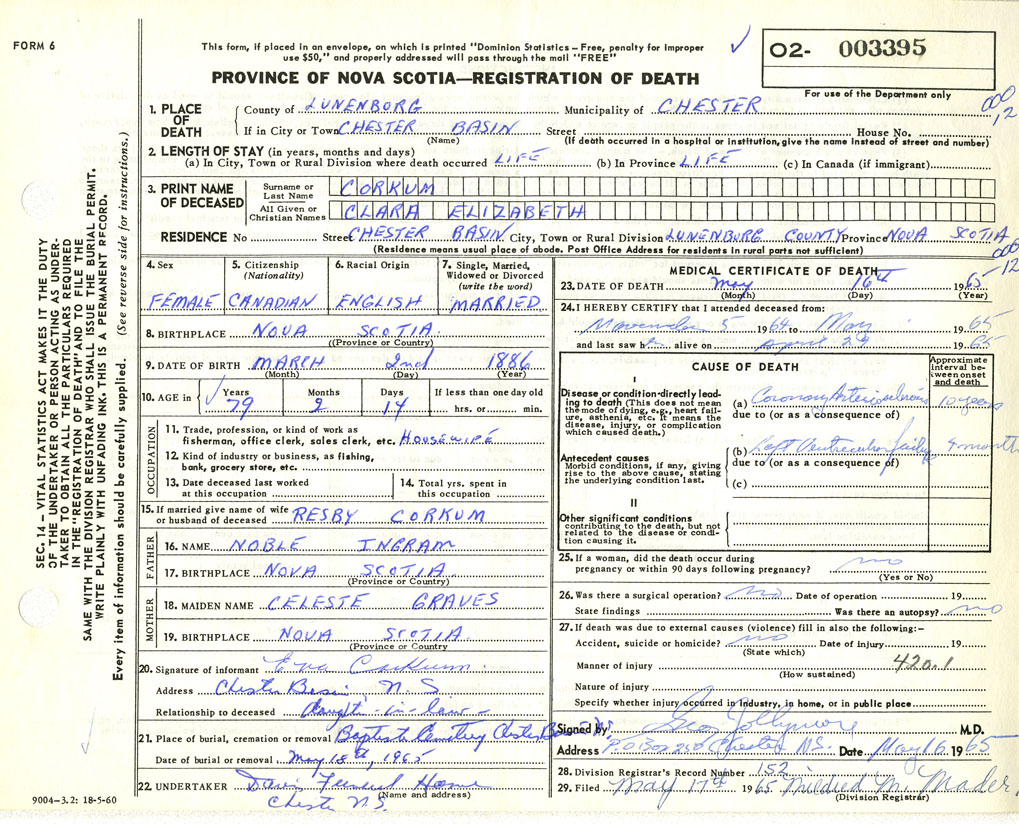 FORM 6
This form, if placed in an envelope, on which is printed "Dominion Statistics – Free, penalty for improper
use $50," and properly addressed will pass through the mail "FREE"
O2- 003395
For use of the Department only
PROVINCE OF NOVA SCOTIA—REGISTRATION OF DEATH
000
12
1. PLACE OF DEATH County of LUNENBURG Municipality of CHESTER
If in City or Town CHESTER BASIN Street House No.
(Name) (If death occurred in a hospital or institution, give the name instead of street and number)
2. LENGTH OF STAY (in years, months and days)
(a) In City, Town or Rural Division where death occurred LIFE (b) In Province LIFE (c) In Canada (if immigrant)
3. PRINT NAME OF DECEASED
Surname or Last Name CORKUM
All Given or Christian Names CLARA ELIZABETH
RESIDENCE No Street CHESTER BASIN City, Town or Rural Division LUNENBURG COUNTY Province NOVA SCOTIA
(Residence means usual place of abode. Post Office Address for residents in rural parts not sufficient)
000
12
4. Sex FEMALE
5. Citizenship (Nationality) CANADIAN
6. Racial Origin ENGLISH
7. Single, Married, Widowed or Divorced (write the word) MARRIED
8. BIRTHPLACE NOVA SCOTIA
(Province or Country)
9. DATE OF BIRTH MARCH 2nd 1886
(Month) (Day) (Year)
10. AGE in Years Months Days If less than one day old
79 2 14 hrs. or min.
OCCUPATION
11. Trade, profession, or kind of work as
fisherman, office clerk, sales clerk, etc. HOUSEWIFE
12. Kind of industry or business, as fishing,
bank, grocery store, etc.
13. Date deceased last worked
at this occupation
14. Total yrs. spent in
this occupation
15. If married give name of wife
or husband of deceased RESBY CORKUM
FATHER
16. NAME NOBLE INGRAM
17. BIRTHPLACE NOVA SCOTIA
(Province or Country)
MOTHER
18. MAIDEN NAME CELESTE GRAVES
19. BIRTHPLACE NOVA SCOTIA
(Province or Country
20. Signature of informant Corkum
Address Chester Basin N.S.
Relationship to deceased daughter-in-law
21. Place of burial, cremation or removal Baptist Cemetery Chester Basin
Date of burial or removal May 18th, 1965
22. UNDERTAKER Davis Funeral Home
(Name and address)
Chester N.S.
9004-3.2: 18-5-60
MEDICAL CERTIFICATE OF DEATH
23. DATE OF DEATH May 16th 1965
(Month) (Day) (Year)
24. I HEREBY CERTIFY that I attended deceased from:
November 5 1964 to May 1965
and last saw her alive on April 29 1965
CAUSE OF DEATH
Approximate interval between onset and death
I
Disease or condition directly leading to death (This does not mean
the mode of dying, e.g., heart failure, asthenia, etc. It means the
disease, injury, or complication
which caused death.)
(a) Coronary Arteriosclerosis 10 years
due to (or as a consequence of)
Antecedent causes
Morbid conditions, if any, giving
rise to the above cause, stating
the underlying condition last.
(b) Left Ventricular failure month
due to (or as a consequence of)
(c)
II
Other significant conditions
contributing to the death, but not
related to the disease or condition causing it.
25. If a woman, did the death occur during
pregnancy or within 90 days following pregnancy? no
(Yes or No)
26. Was there a surgical operation? no Date of operation 19
State findings Was there an autopsy? no
27. If death was due to external causes (violence) fill in also the following:–
Accident, suicide or homicide? no Date of injury 19
(State which)
Manner of injury 420.1
(How sustained)
Nature of injury
Specify whether injury occurred in industry, in home, or in public place
Signed by Geo Jollymore M.D.
Address P.O Box 250 Chester N.S. Date May 16 1965
28. Division Registrar's Record Number 152
29. Filed May 17th 1965 Mildred M. Mader
(Division Registrar)
SEC. 14 – VITAL STATISTICS ACT MAKES IT THE DUTY
OF THE UNDERTAKER OR PERSON ACTING AS UNDER-
TAKER TO OBTAIN ALL THE PARTICULARS REQUIRED
IN THE "REGISTRATION OF DEATH" AND TO FILE THE
SAME WITH THE DIVISION REGISTRAR WHO SHALL ISSUE THE BURIAL PERMIT.
WRITE PLAINLY WITH UNFADING INK. THIS IS A PERMANENT RECORD.
Every item of information should be carefully supplied. (See reverse side for instructions.)